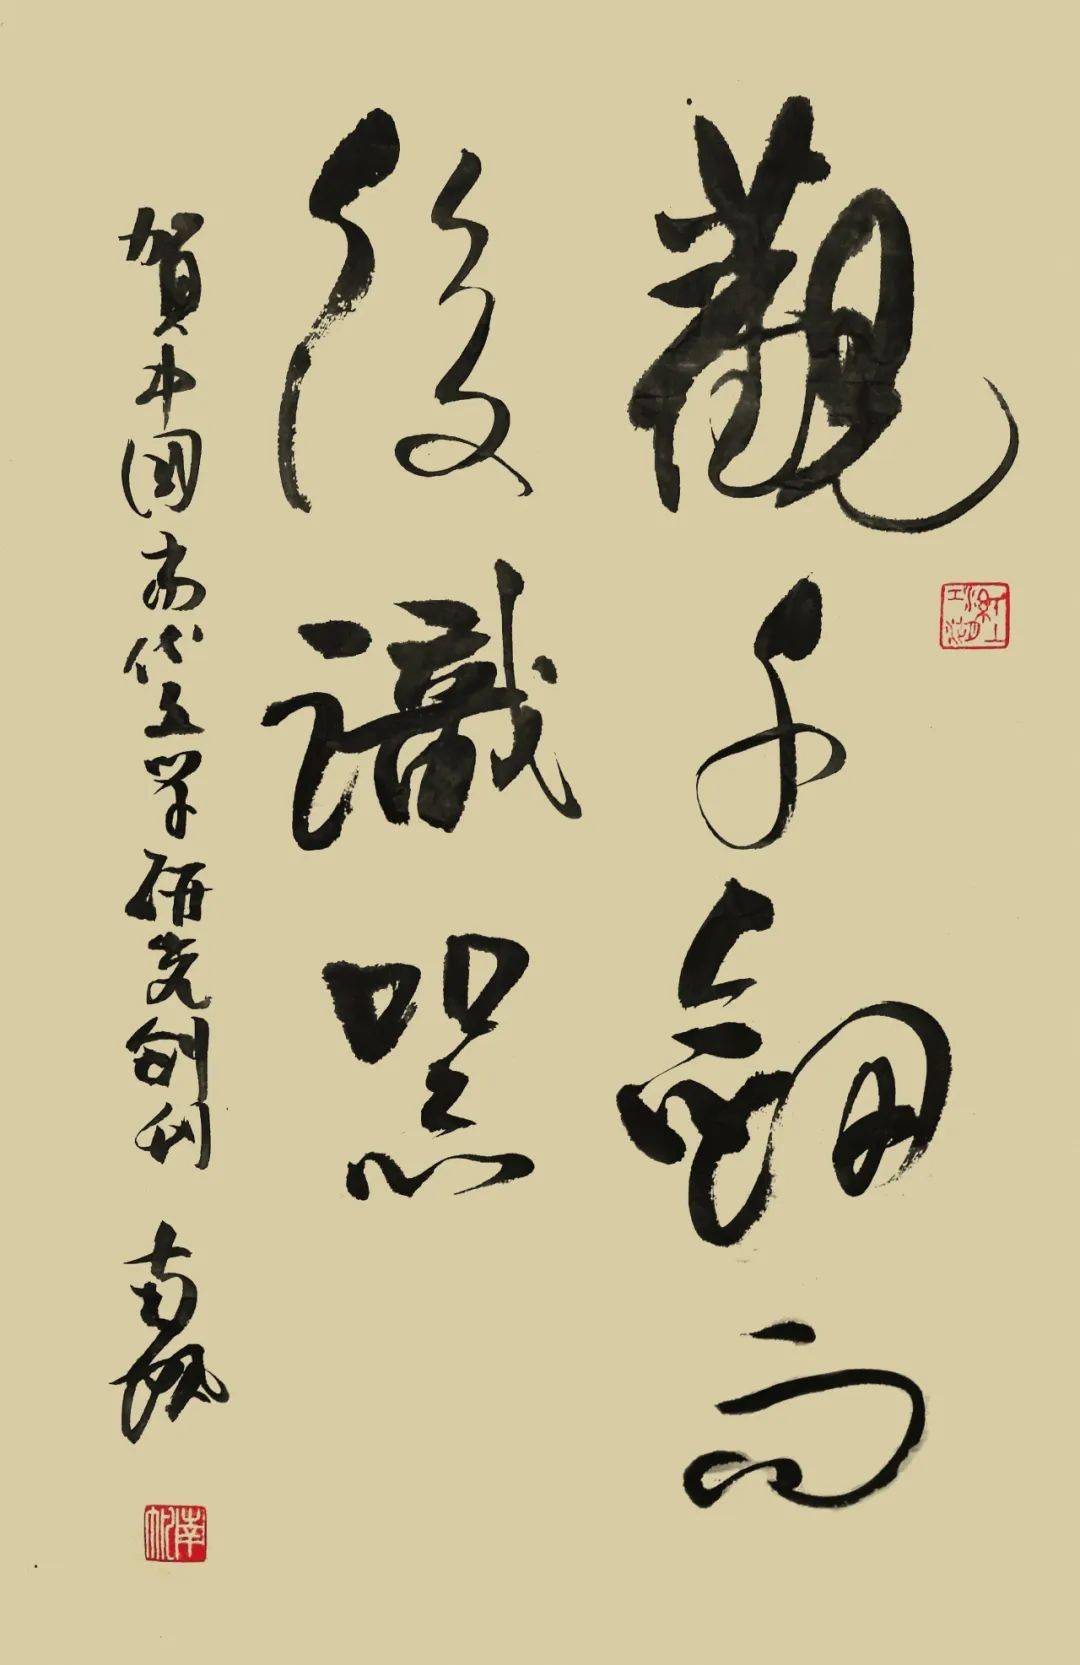 觀千劍而
後識器
賀中國當代文學研究創刊 南帆
南帆